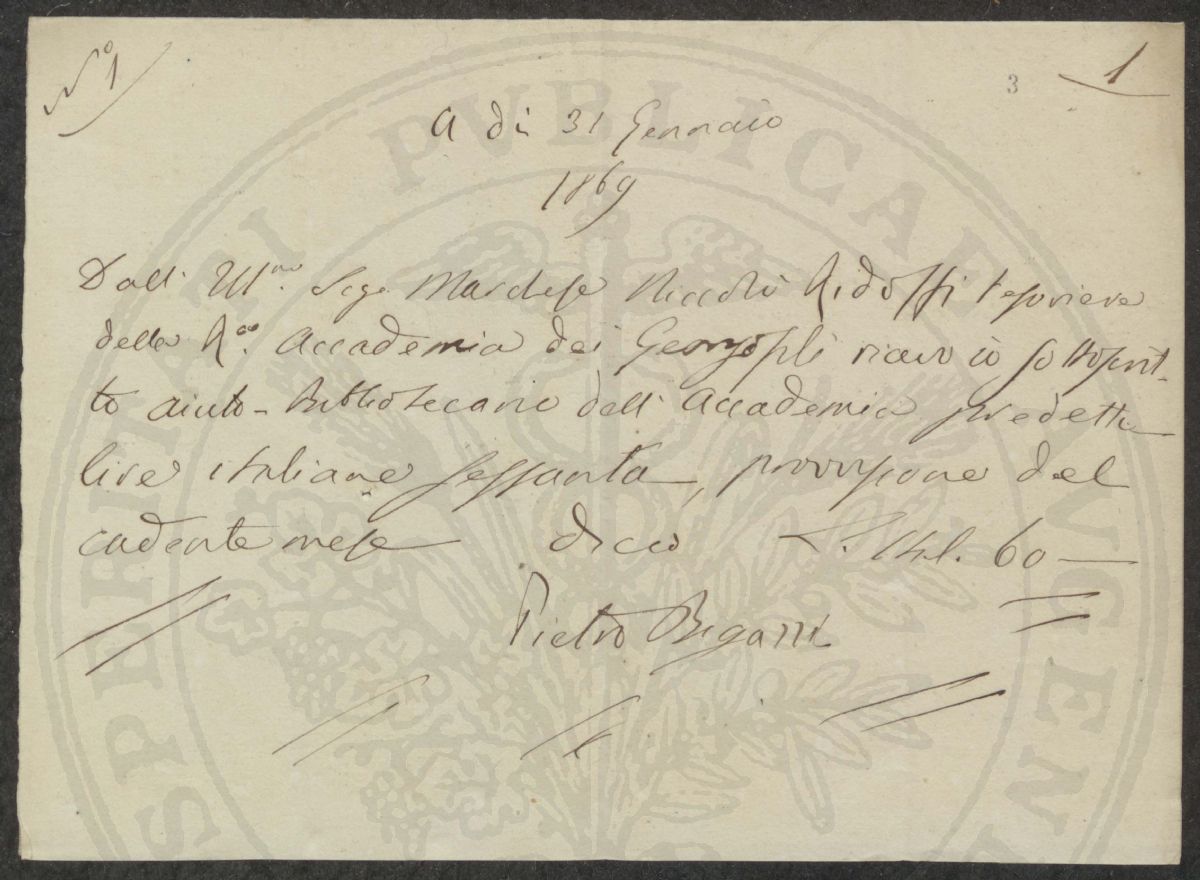 N.° 1
3
1
A dì 31 Gennaio
1869
Dall' Ill.mo Sigr Marchese Niccolò Ridolfi Tesoriere
della R.a Accademia dei Georgofili ricevo io sottoscrit-
to aiuto-Bibliotecario dell' Accademia predetta
lire italiane sessanta, provvisione del
cadente mese dico L. Ital. 60
Pietro Bigazzi
PROSPERITATI PVBLICAE AVGENDAE